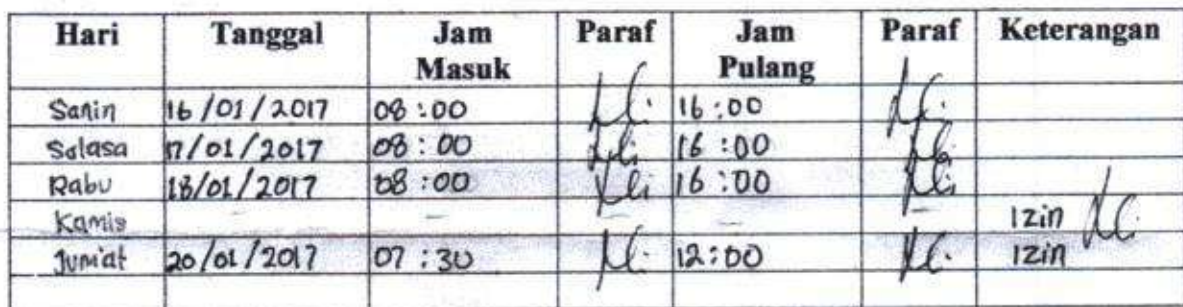 Hari Tanggal Jam Masuk Paraf Jam Pulang Paraf Keterangan
Senin 16/01/2017 08:00 16:00
Selasa 17/01/2017 08:00 16:00
Rabu 18/01/2017 08:00 16:00
Kamis - - - Izin
Jum'at 20/01/2017 07:30 12:00 Izin